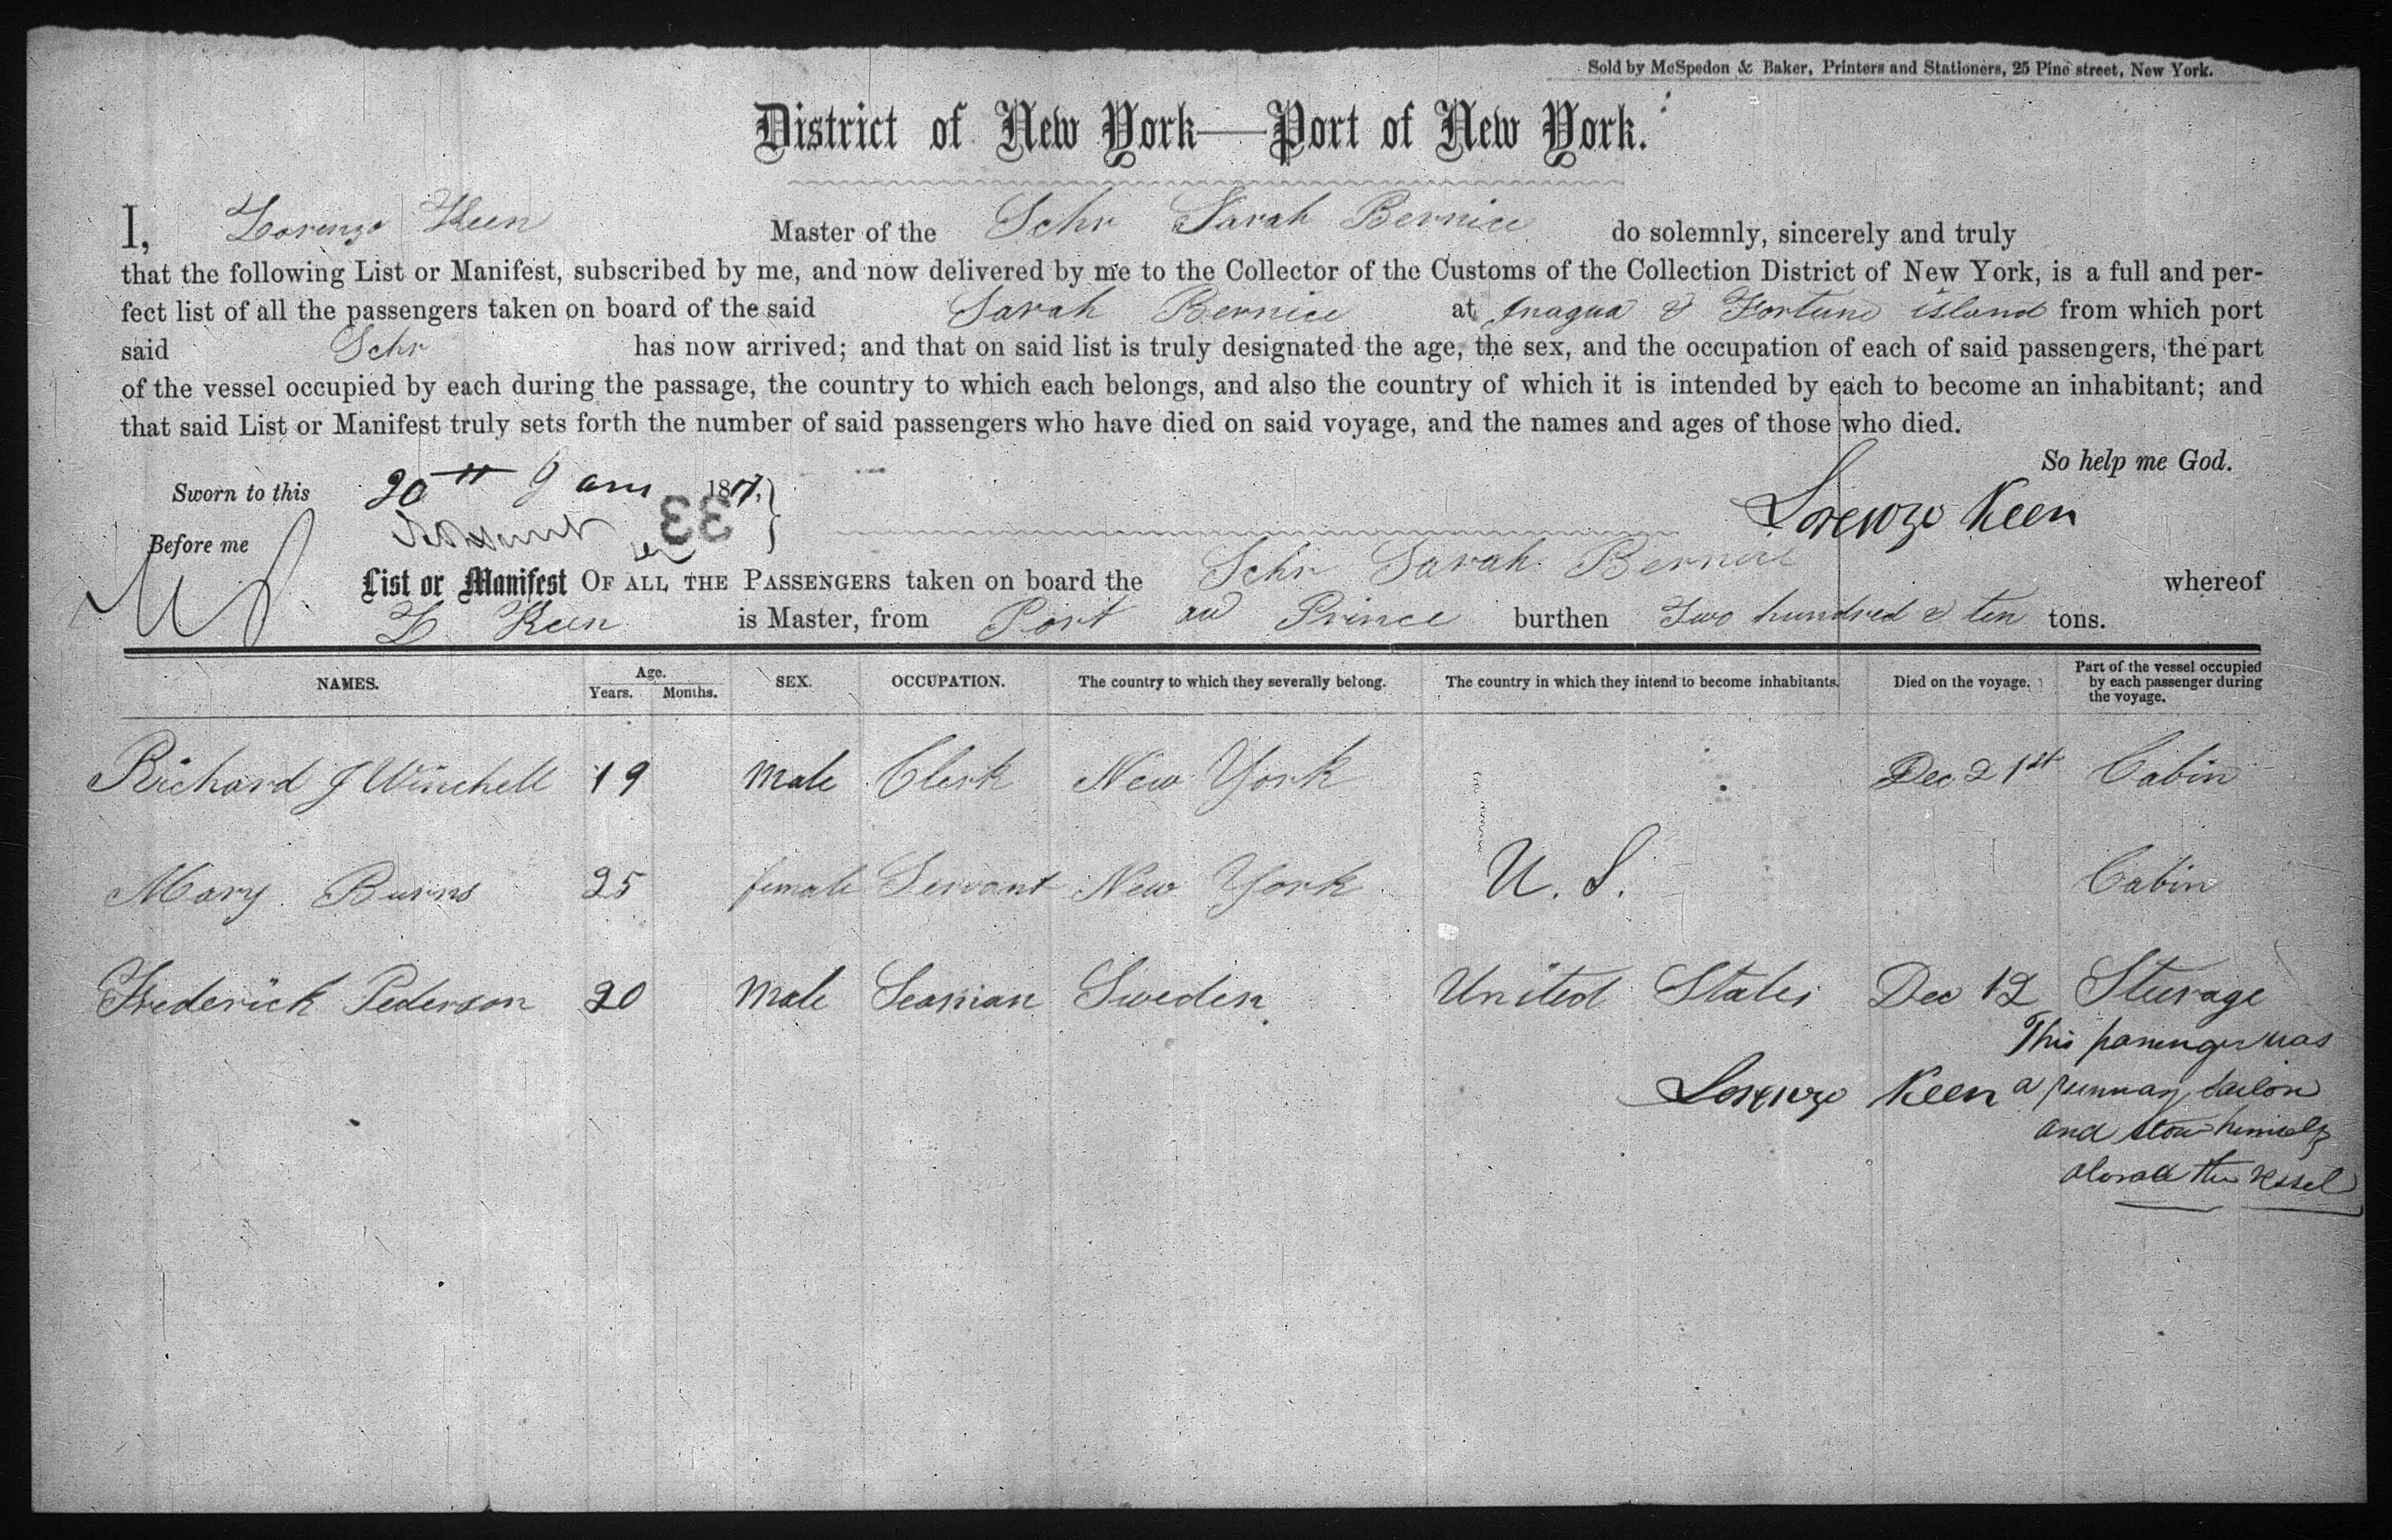 Sold by McSpedon & Baker, Printers and Stationers, 25 Pine street, New York.
District of New York—Port of New York.
I, Lorenzo Keen Master of the Schr Sarah Bernice do solemnly, sincerely and truly
that the following List or Manifest, subscribed by me, and now delivered by me to the Collector of the Customs of the Collection District of New York, is a full and per-
fect list of all the passengers taken on board of the said Sarah Bernice at Inagua & Fortune island from which port
said Schr has now arrived; and that on said list is truly designated the age, the sex, and the occupation of each of said passengers, the part
of the vessel occupied by each during the passage, the country to which each belongs, and also the country of which it is intended by each to become an inhabitant; and
that said List or Manifest truly sets forth the number of said passengers who have died on said voyage, and the names and ages of those who died.
So help me God.
Sworn to this 20th Jany 18
Lorenzo Keen
33
Before me
List or Manifest OF ALL THE PASSENGERS taken on board the Schr Sarah Bernice whereof
L Keen is Master, from Port au Prince burthen Two hundred & ten tons.
NAMES. Age. Years. Months. SEX. OCCUPATION. The country to which they severally belong. The country in which they intend to become inhabitants. Died on the voyage. Part of the vessel occupied by each passenger during the voyage.
Richard J Winchell 19 male Clerk New York Dec 21st Cabin
Mary Burns 25 female Servant New York U. S. Cabin
Frederick Pederson 20 male Seaman Sweden United States Dec 12 Steerage
This passenger was
Lorenzo Keen
a runway sailor
and stow himself
aboard the vessel